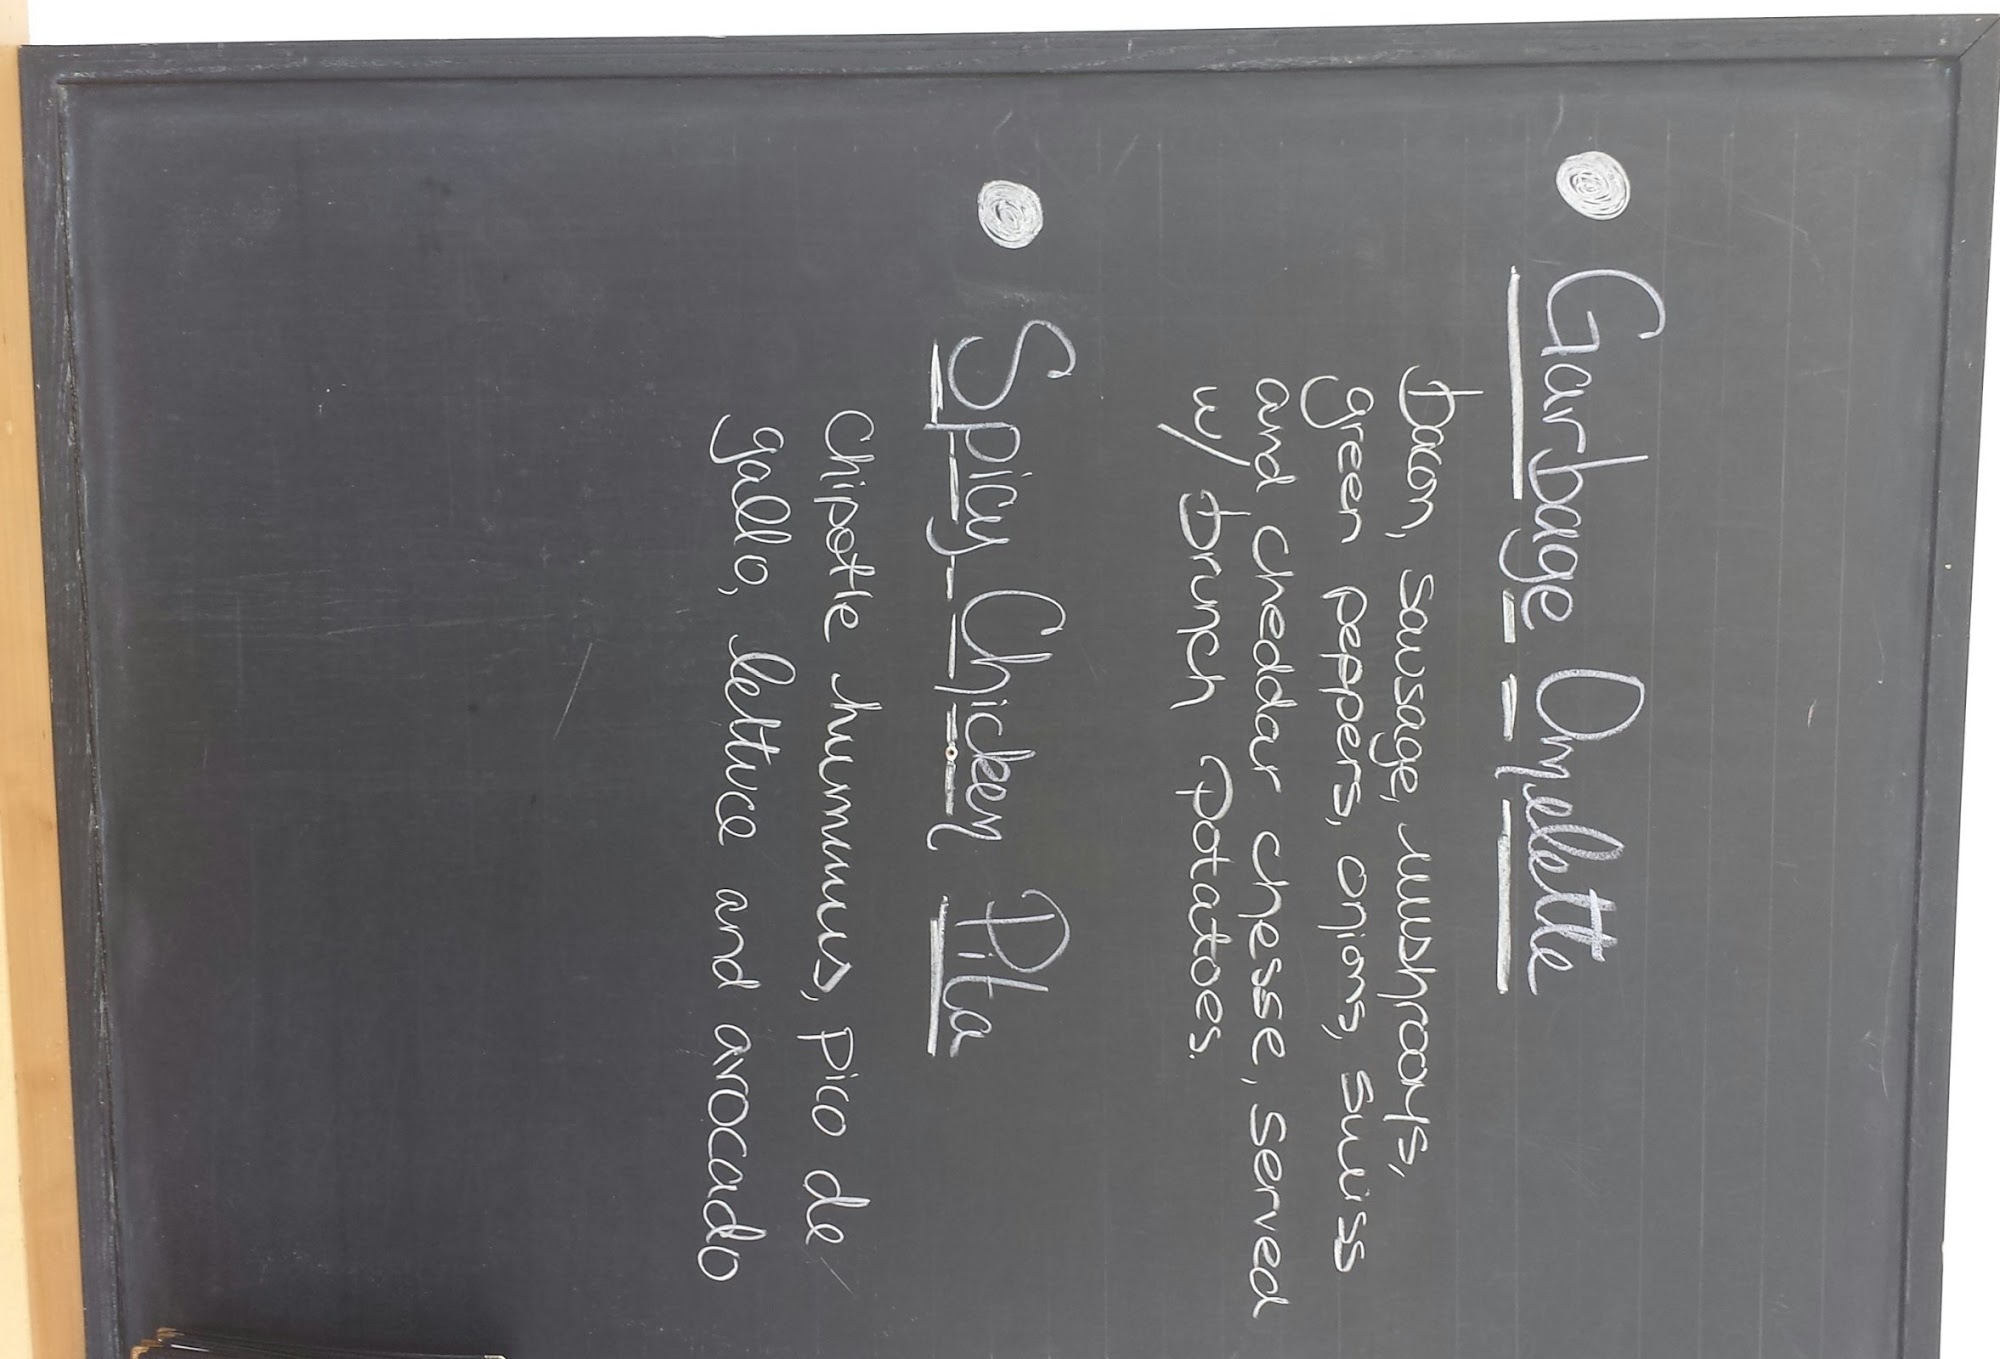 Garbage Omelette
bacon, sausage, mushrooms,
green peppers, onions, swiss
and cheddar chesse, served
w/ brunch potatoes.
Spicy Chicken Pita
Chipotle hummus, pico de
gallo, lettuce and avocado